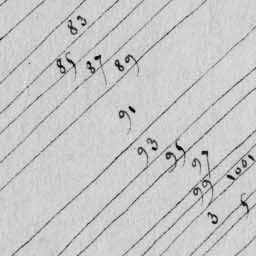 83
85 87 89
91
93 95 97
99 1001
3 5